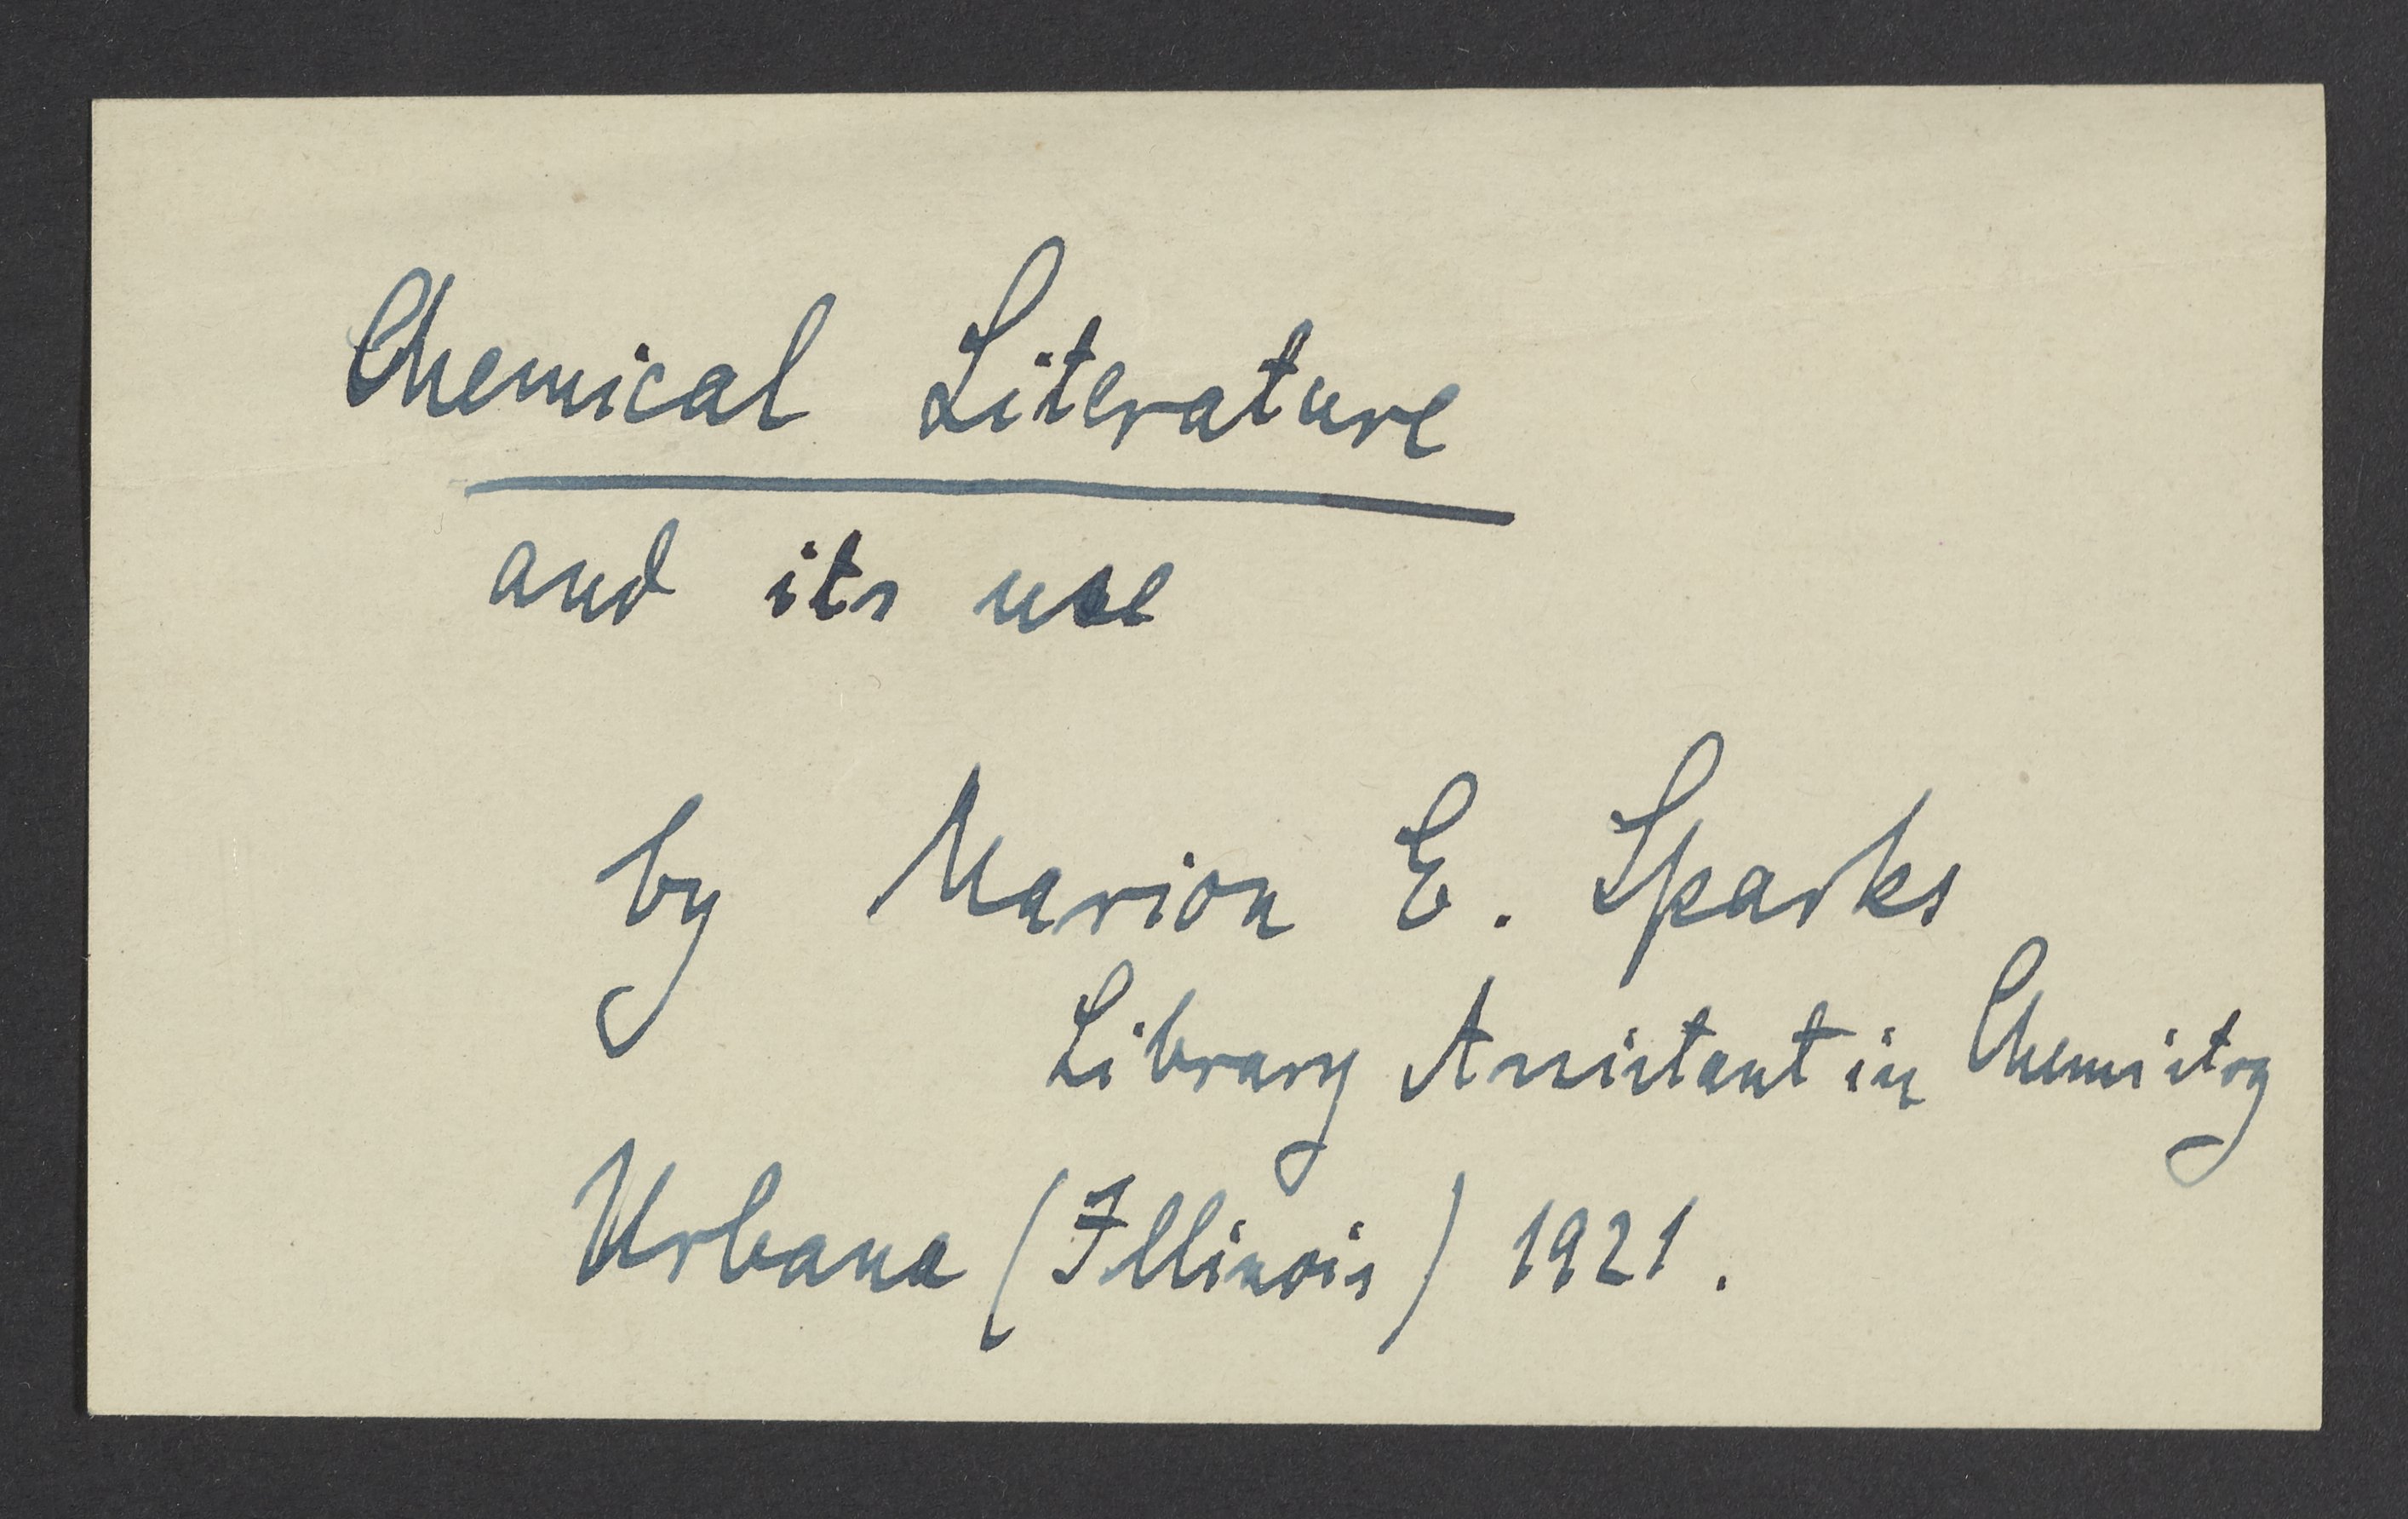 Chemical Literature
and its use
by Marion E. Sparks
Library Assistant in Chemistry
Urbana (Illinois) 1921.